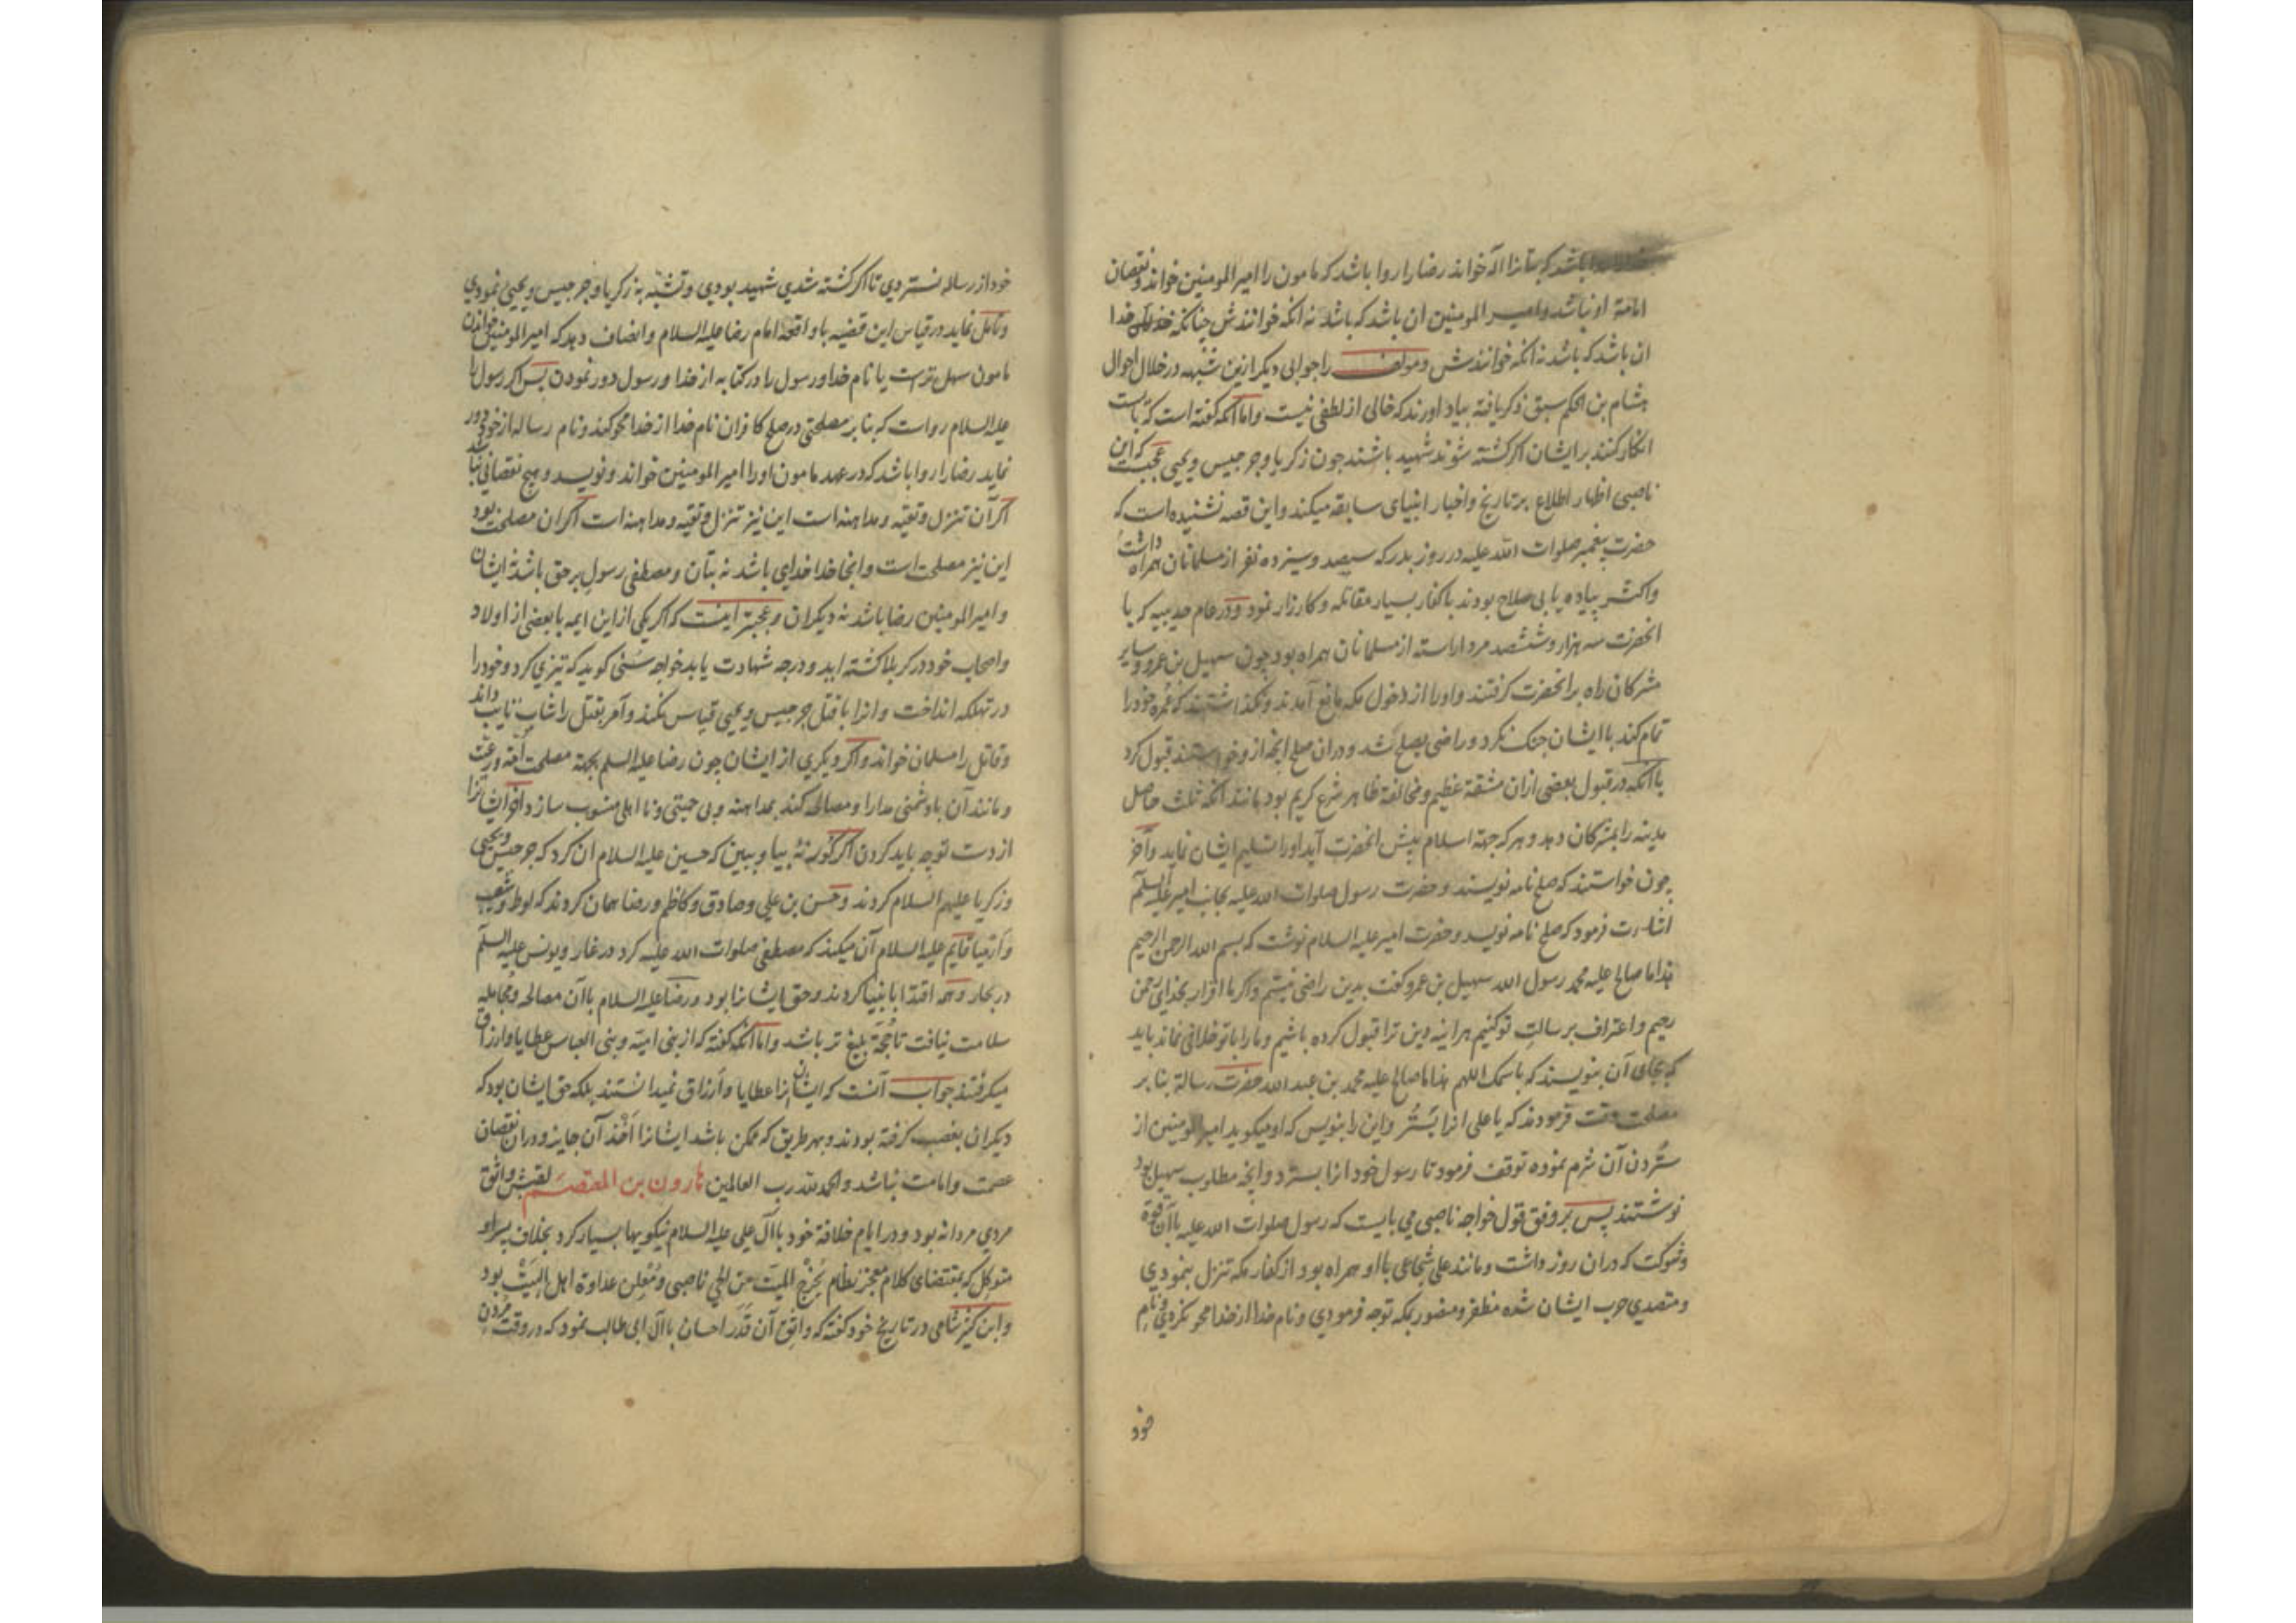 باشد که بتانرا اله خواند رضا را روا باشد که مامون را امیر المومنین خواند و نقصان
امامة او نباشد و امیر المومنین ان باشد که باشد نه انکه خوانندش چنانکه خدا
ان باشد که باشد نه انکه خوانندش و مولف را جوابی دیکر ازین شبهه در خلال احوال
هشام بن الحکم سبق ذکر یافته بیاد اورند که خالی از لطفی نیست و اما انکه کفته است که بایست
انکار کنند بر ایشان اکر کشته شوند شهید باشند چون زکریا و جرجیس و یحیی عجبست که این
ناصبی اظهار اطلاع بر تاریخ و اخبار انبیای سابقه میکند و این قصه نشنیده است که
حضرت پیغمبر صلوات الله علیه در روز بدر که سیصد و سیزده نفر از مسلمانان همراه داشت
و اکثر پیاده یا بی صلاح بودند با کفار بسیار مقاتله و کارزار نمود و در عام حدیبیه که با
انحضرت سه هزار و ششصد مرد اراسته از مسلمانان همراه بود چون سهیل بن عمرو و سایر
مشرکان راه بر انحضرت کرفتند و او را از دخول مکه مانع آمدند و نکذاشتند که عمره خود را
تمام کند با ایشان جنک نکرد و راضی بصلح شد و دران صلح انچه ازو خواستند قبول کرد
با آنکه در قبول بعضی ازان مشقة عظیم و مخالفة ظاهر شرع کریم بود مانند انکه ثلث حاصل
مدینه را بمشرکان دهد و هر که جهة اسلام پیش انحضرت آید او را تسلیم ایشان نماید و آخر
چون خواستند که صلح نامه نویسند و حضرت رسول صلوات الله علیه بجانب امیر علیه السلم
اشارت فرمود که صلح نامه نویسد و حضرت امیر علیه السلام نوشت که بسم الله الرحمن الرحیم
هذا ما صالح علیه محمد رسول الله سهیل بن عمرو کفت بدین راضی نیستم و اکر ما اقرار بخدای رحمن
رحیم و اعتراف برسالت تو کنیم هر اینه دین ترا قبول کرده باشیم و ما را با تو خلافی نماند باید
که بجای آن بنویسند که باسمک اللهم هذا ما صالح علیه محمد بن عبد الله حضرت رسالة بنا بر
مصلحت وقت فرمودند که یا علی انرا بستر و این را بنویس که او میکوید امیر المومنین از
ستردن آن شرم نموده توقف فرمود تا رسول خود انرا بسترد و انچه مطلوب سهیل بود
نوشتند پس بر وفق قول خواجه ناصبی می بایست که رسول صلوات الله علیه با آن قوة
و شوکت که دران روز داشت و مانند علی شجاعی با او همراه بود از کفار مکه تنزل ننمودی
و متصدی حرب ایشان شده مظفر و منصور بمکه توجه فرمودی و نام خدا از خدا محو نکردی و نام
خود
خود از رساله نستردی تا اکر کشته شدی شهید بودی و تشبه به زکریا و جرجیس و یحیی نمودی
و تامل نماید در قیاس این قضیه با واقعه امام رضا علیه السلام و انصاف دهد که امیر المومنین خواندن
مامون سهل ترست یا نام خدا و رسول را در کتابه از خدا و رسول دور نمودن پس اکر رسول را
علیه السلام رواست که بنا بر مصلحتی در صلح کافران نام خدا از خدا محو کند و نام رساله از خود دور
نماید رضا را روا باشد که در عهد مامون او را امیر المومنین خواند و نویسد و هیچ نقصانی نباشد
اکر آن تنزل و تقیه و مداهنه است این نیز تنزل و تقیه و مداهنه است اکر ان مصلحت بود
این نیز مصلحت است و انجا خدا خدای باشد نه بتان و مصطفی رسول بر حق باشد نه ایشان
و امیر المومنین رضا باشد نه دیکران و عجبتر اینست که اکر یکی از این ایمه با بعضی از اولاد
و اصحاب خود در کربلا کشته اید و درجه شهادت یابد خواجه سنی کوید که تیزی کرد و خود را
در تهلکه انداخت و انرا با قتل جرجیس و یحیی قیاس نکند و آمر بقتل را شاب نایب داند
و قاتل را مسلمان خواند و اکر دیکری از ایشان چون رضا علیه السلم بجهة مصلحت امة و رعیت
و مانند آن با دشمنی مدارا و مصالحه کند بمداهنه و بی حمیتی و نا اهلی منسوب سازد اخر ایشانرا
از دست تو چه باید کردن اکر کور نهٔ بیا و ببین که حسین علیه السلام ان کرد که جرجیس و یحیی
و زکریا علیهم السلام کردند و حسن بن علی و صادق و کاظم و رضا همان کردند که لوط و شعیب
و ارمیا قایم علیه السلام آن میکند که مصطفی صلوات الله علیه کرد در غار و یونس علیه السلم
در بحار و همه اقتدا بانبیا کردند و حق ایشانرا بود و رضا علیه السلام با آن مصالحه و مجامله
سلامت نیافت تا حجة بلیغ تر باشد و اما انکه کفته که از بنی امیه و بنی العباس عطایا و ارزاق
میکرفتند جواب آنست که ایشان انرا عطایا و ارزاق نمیدانستند بلکه حق ایشان بود که
دیکران بغصب کرفته بودند و بهر طریق که ممکن باشد ایشانرا اخذ آن جایز و دران نقصان
عصمت و امامت نباشد و الحمد لله رب العالمین هارون بن المعتصم لقبش واثق
مردی مردانه بود و در ایام خلافة خود با آل علی علیه السلام نیکویها بسیار کرد بخلاف برادر
متوکل که بمقتضای کلام معجز نظام یخرج المیت من الحی ناصبی و معلن عداوة اهل البیت بود
و ابن کثیر شامی در تاریخ خود کفته که واثق آن قدر احسان با آل ابی طالب نمود که در وقت مردن